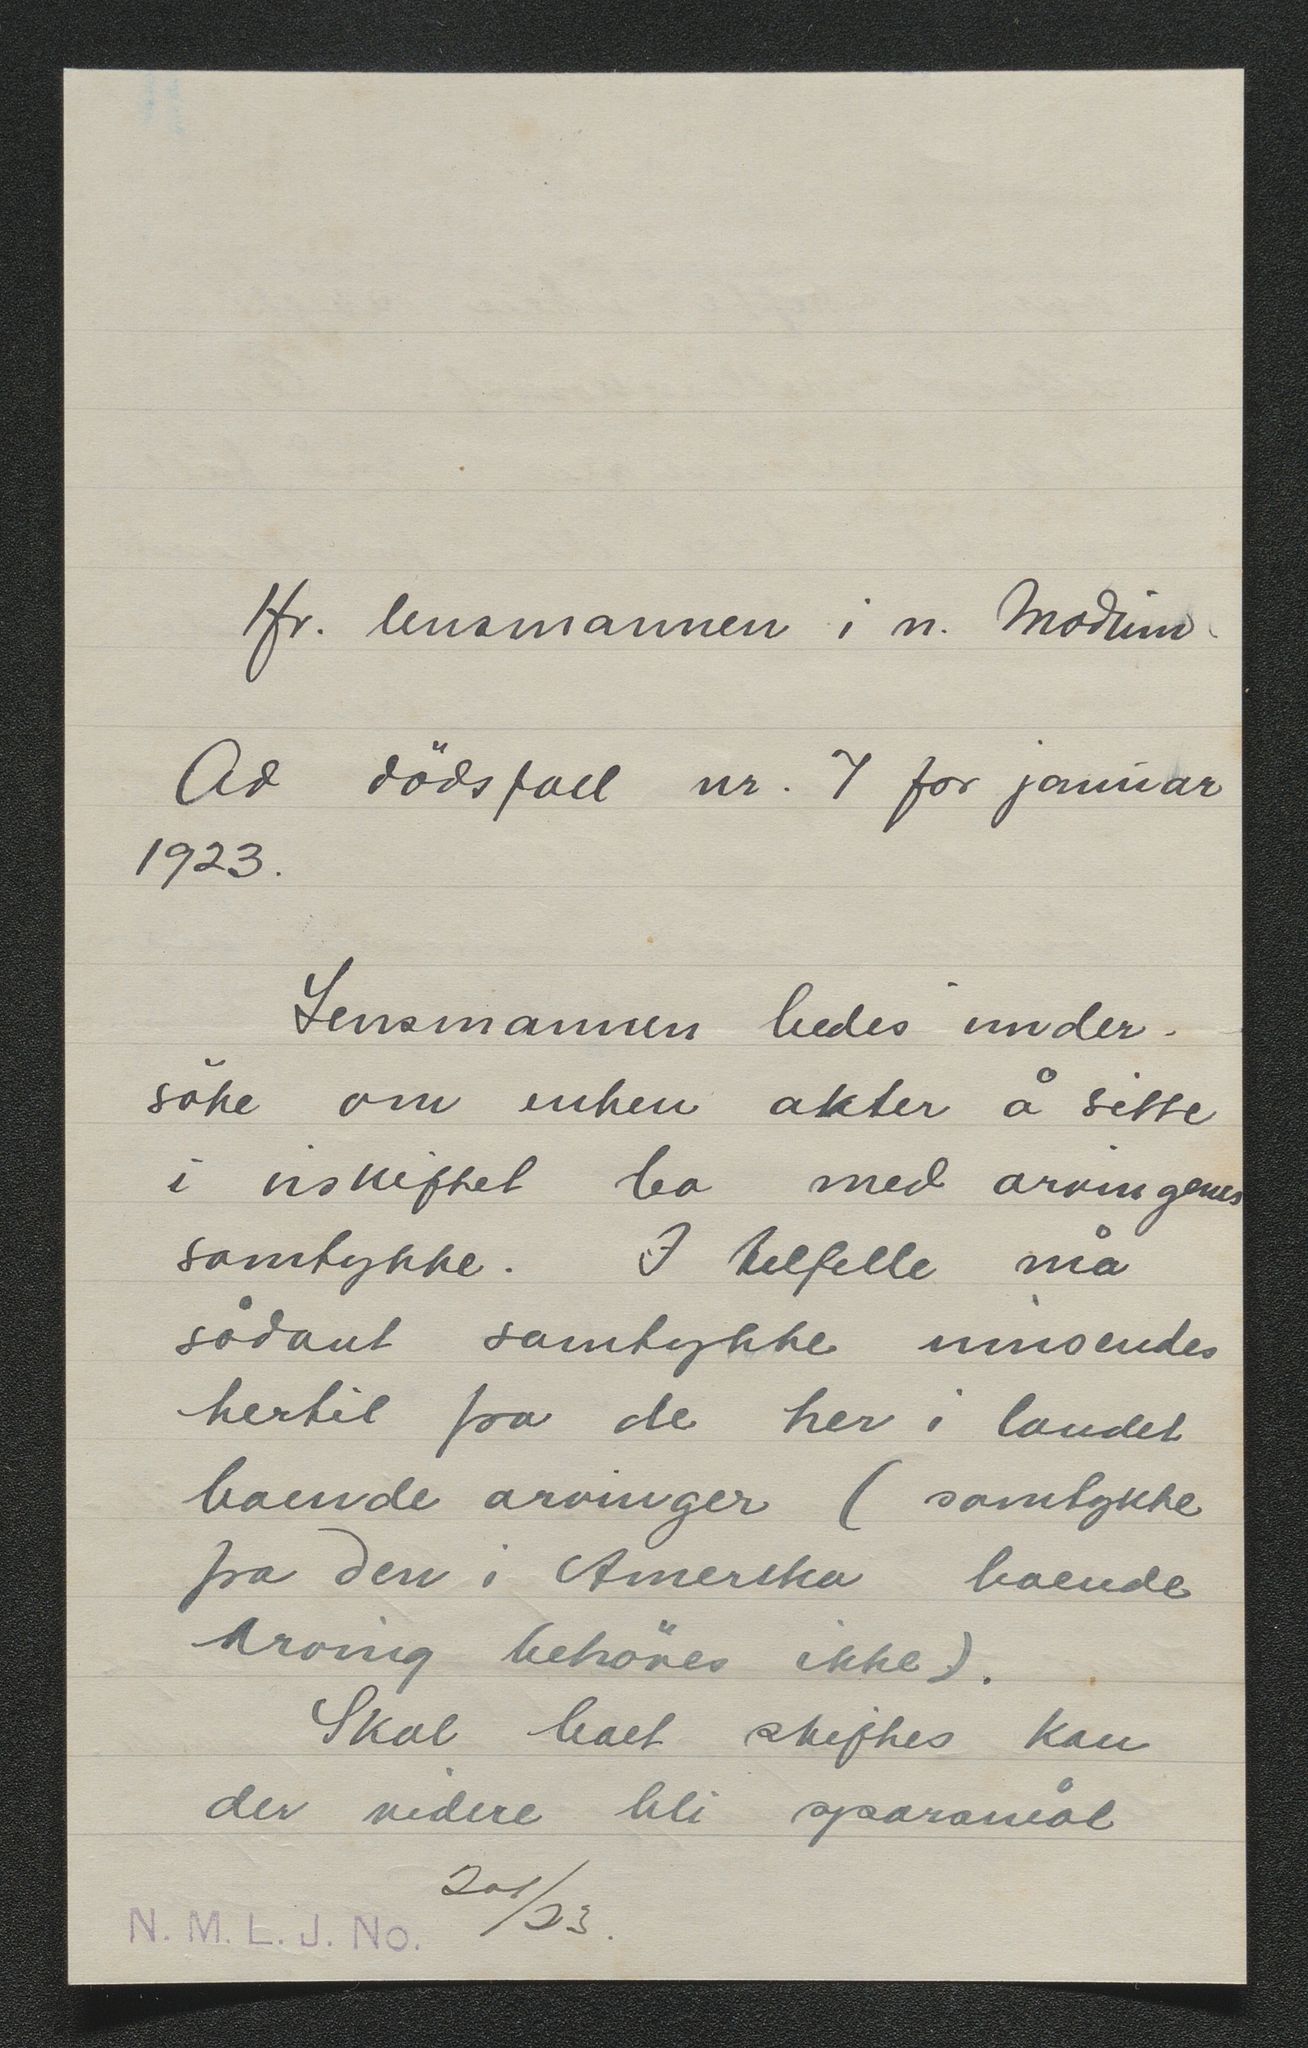 Hr. lensmannen i n. Modum.
Ad dödsfall nr. 7 for januar
1923.
Lensmannen bedes under-
söke om enken akter å sitte
i uskiftet bo med arvingenes
samtykke. I tilfelle må
sådant samtykke innsendes
hertil fra de her i landet
boende arvinger (samtykke
fra den i Amerika boende
arving behöves ikke).
Skal boet skiftes kan
der videre bli spörsmål
201/23.
N. M. L. J. No.